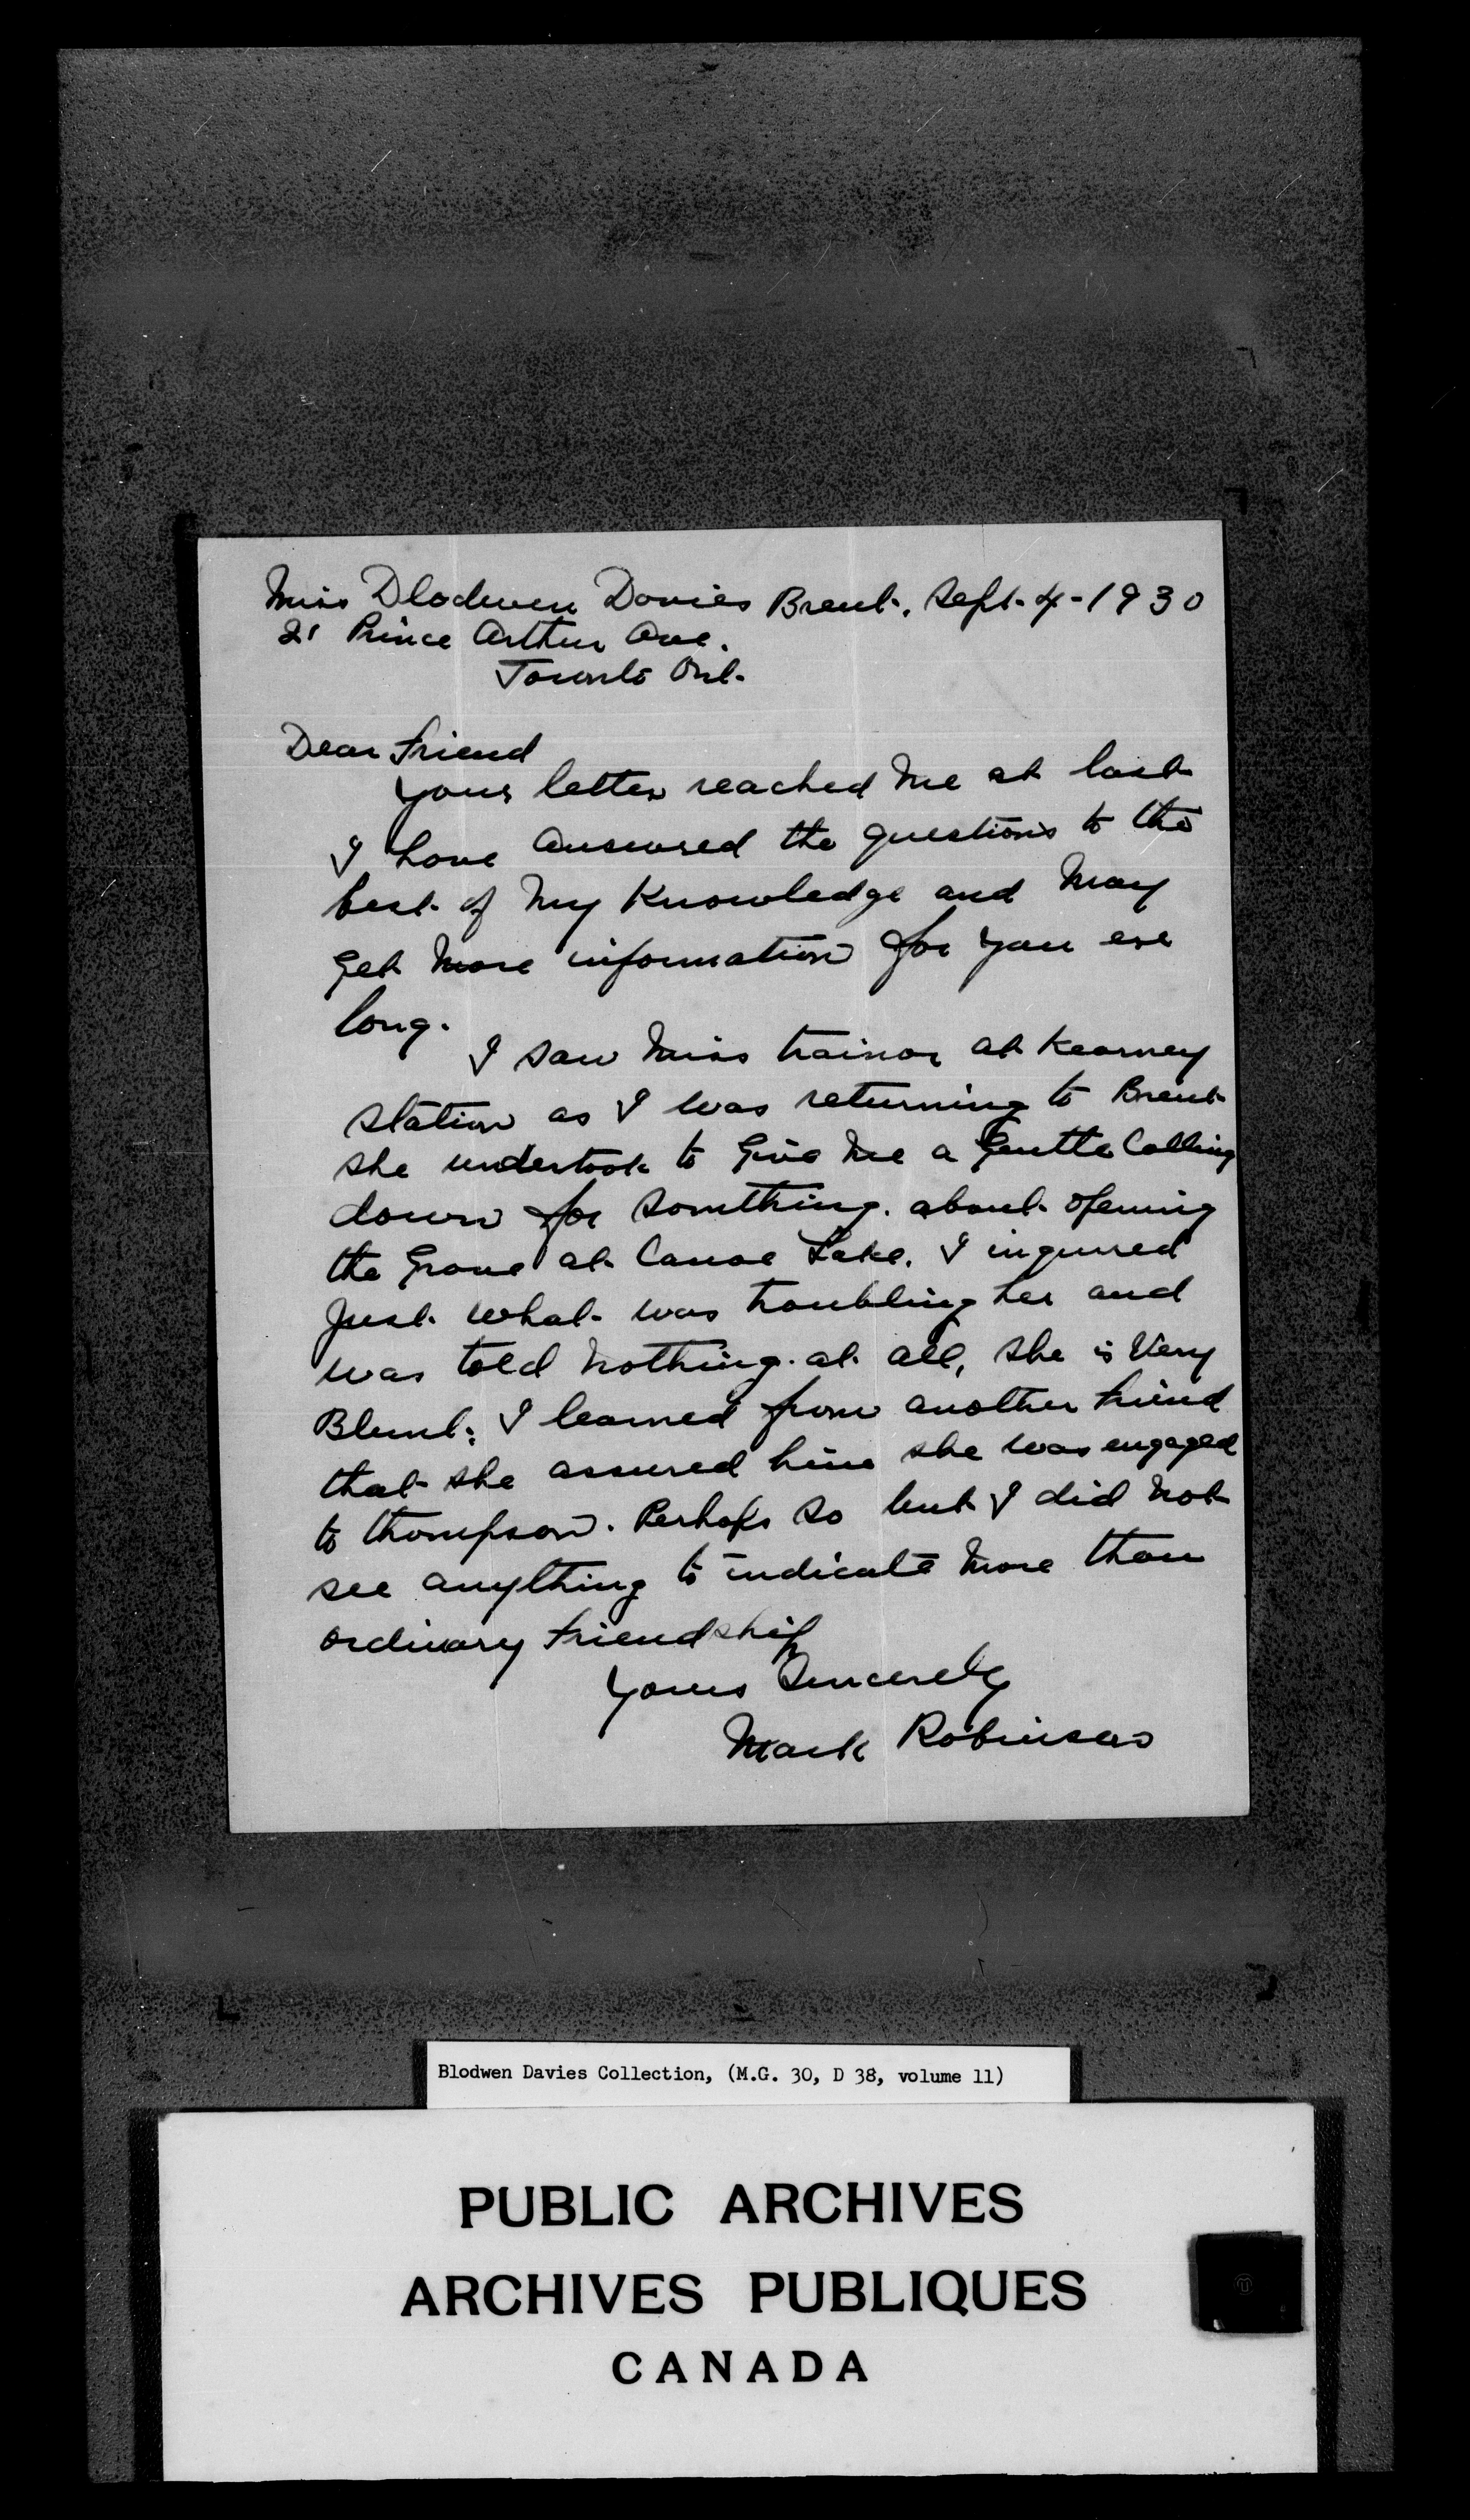 Miss Dlodwen Davies Brent. Sept. 4 - 1930
21 Prince Arthur Ave.
Toronto Ont.
Dear Friend
Your letter reached Me at last
I have answered the questions to the
best of My Knowledge and May
get More information for you ere
long.
I saw Miss trainor at Kearney
station as I was returning to Brent
she undertook to Give Me a Gentle Calling
down for something. about opening
the Grave at Canoe Lake. I inquired
Just what was troubling her and
was told Nothing at all, she is Very
Blunt; I learned from another friend
that she assured him she was engaged
to thompson. Perhaps so but I did Not
see anything to indicate More than
ordinary friendship
Yours Sincerely
Mark Robinson
Blodwen Davies Collection, (M.G. 30, D 38, volume 11)
PUBLIC ARCHIVES
ARCHIVES PUBLIQUES
CANADA